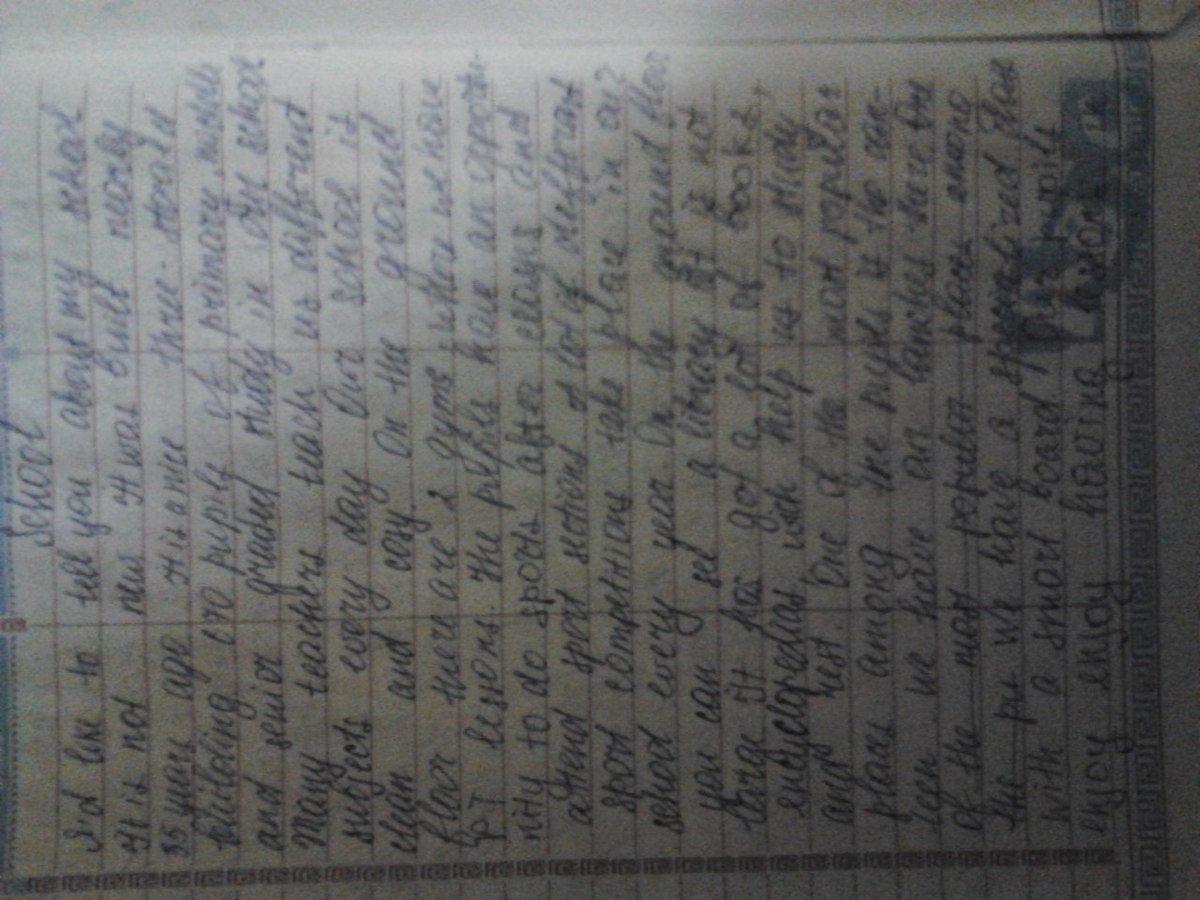 School
I'd like to tell you about my school
It is not new It was built nearly
35 years ago It is a nice three-storeyed
building 670 pupils of primary, middle
and senior grades study in our school
Many teachers teach us different
subjects every day Our school is
clean and cosy. On the ground
floor there are 2 gyms where we have
PT lessons. The pupils have an opportu-
nity to do sports after lessons and
attend sport sections A lot of different
sport competitions take place in our
school every year On the ground floor
you can see a library It is not
large It has got a lot of books,
encyclopedias wich help us to study
and rest. One of the most popular
places among the pupils is the can-
teen we have our lanches there One
of the most popular place among
the pu we have a specialized class
with a smart board Our pupils
enjoy enjoy having lessons in